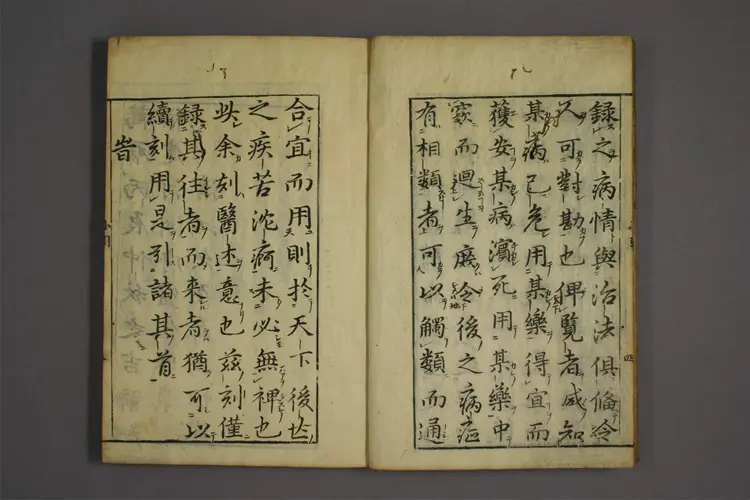 録之病情與治法俱備令
人可對勘也俾覽者咸知
某病已危用某藥得宜而
獲安某病瀕死用某藥中
窾而廻生庶令後之病症
有相類者可以觸類而通
合宜而用則於天下後世
之疾苦沈痾未必無裨也
此余刻醫述意也茲刻僅
録其往者而來者猶可以
續刻用是引諸其首
旹